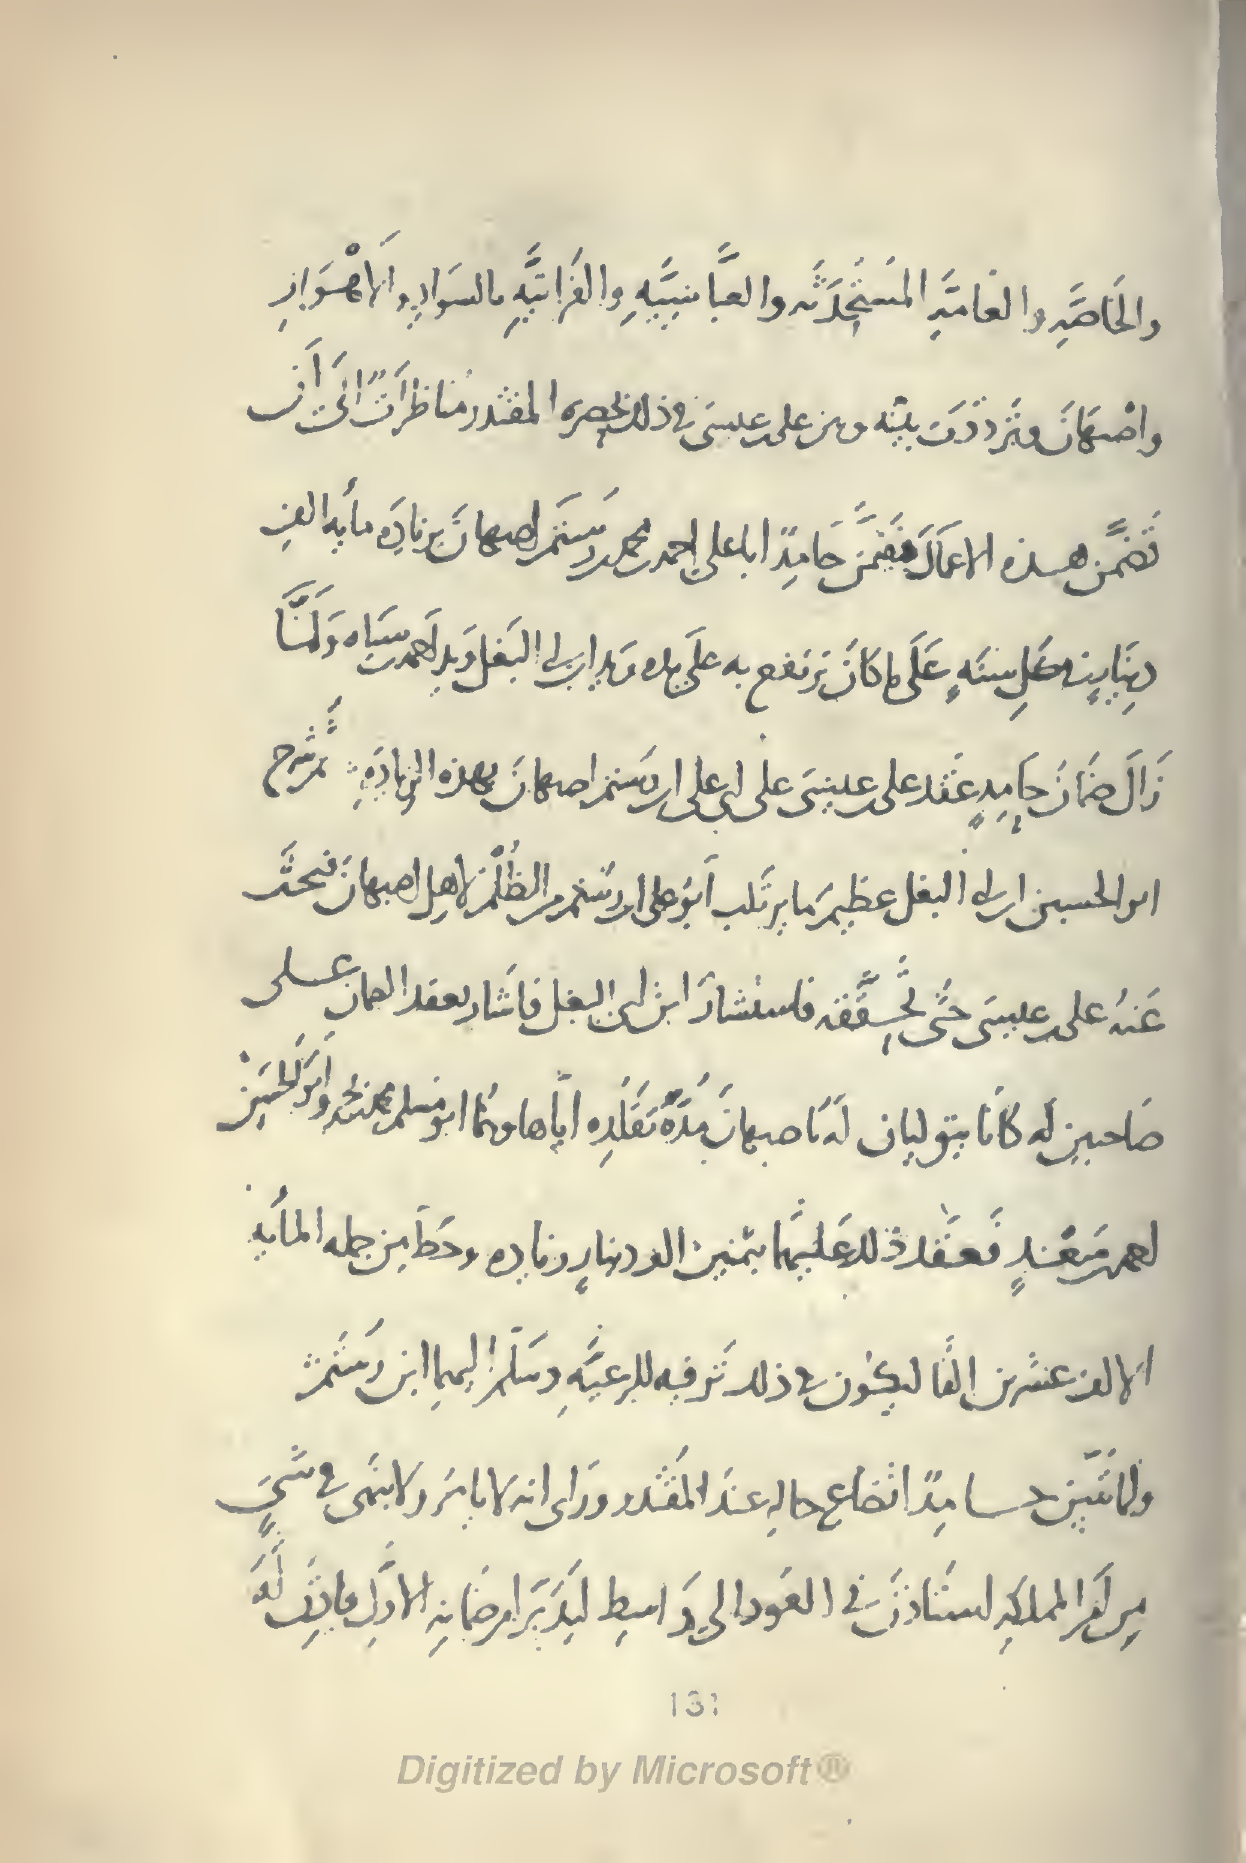 والخاصَّةِ والعامَّةِ المستحدثه والعبَّاسيَّهِ والفُراتيَّهِ بالسوادِ والاهْوازِ
واصْبهانَ وتَردّدَت بينه وبين على بن عيسَى فى ذلك بحضرة المقتدر مُناظراتٌ الى أن
تَضمَّن هذه الاعمالَ فتضمَّن حامِدٌ ابا على احمد بن محمد بن رستم اصبهانَ بزيادَه مايه الف
دِينارٍ فى كل سنهٍ عَلَى ما كانَ يرتفع به على يده ويد ابن ابى البغل ويد احمد بن سياه ولمَّا
زَالَ ضمانُ حامِدٍ عقد على بن عيسَى على ابى على ابن رُستم اصبهانَ بهذه الزيادَهِ ثم شرح
ابو الحسين ابن ابى البغل عظيمَ ما يرتكب ابو على ابن رُستم من الظُلْم لاهل اصبهانَ فبحثَ
عَنهُ على بن عيسَى حتَّى تحقَّقه فاستشارَ ابنَ ابى البغل فاشار بعقد الضمان على
صَاحبين له كانا يتوليان لهَ اصبهانَ مُدَّهَ تقلّدِه ايَّاها وهُما ابو مسلم محمد بن بحر وابو الحسين
احمد بن سَعْدٍ فعقد ذلك عليهما بثمنين الف دينارٍ زياده وحَطَّ مِن جمله المايه
الالف عشرين الفًا ليكون فى ذلك تَرفيه للرعيَّهِ وسَلّم اليهما ابن رُستم
ولمَّا تبيَّن حامِدٌ اتضاع حالِهِ عندَ المقتدر ورَاى انه لا يامُر ولا ينهَى فى شىءٍ
مِن امر المملكَهِ استاذنَ فى العَود الى وَاسِط ليُدَبّرَ امر ضمانِهِ الاوَّل فاذِنَ لَهُ
131
Digitized by Microsoft®